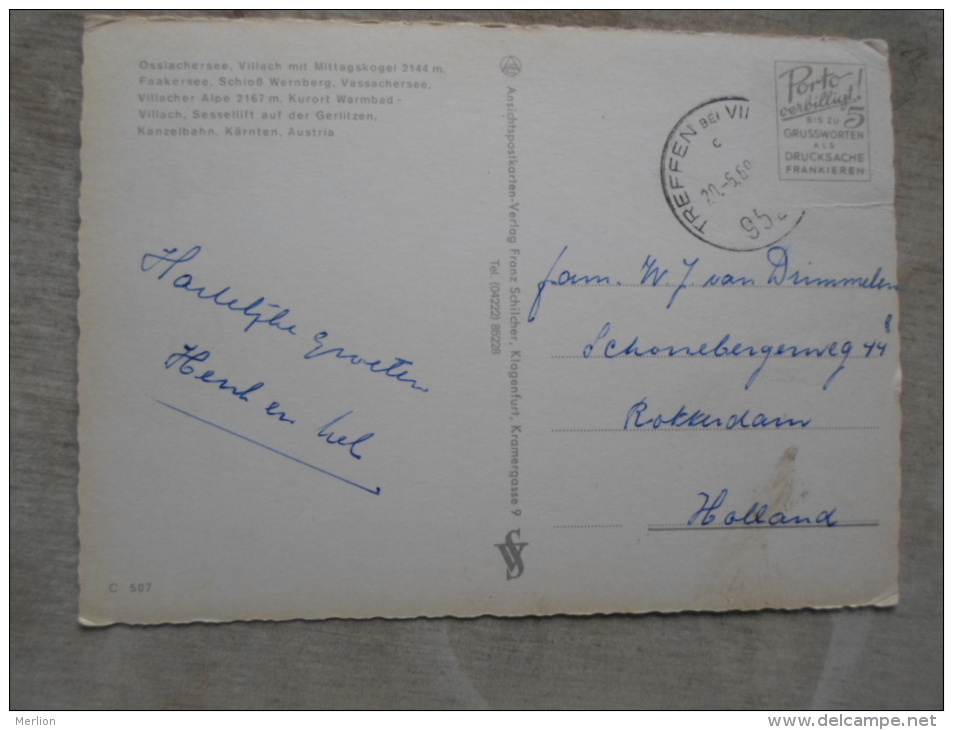 Ossiachersee, Villach mit Mittagskogel 2144 m,
Faakersee, Schloß Wernberg, Vassachersee,
Villacher Alpe 2167 m, Kurort Warmbad-
Villach, Sessellift auf der Gerlitzen,
Kanzelbahn, Kärnten, Austria
Hartelijke groeten
Henk en Nel
C 507
Ansichtspostkarten-Verlag Franz Schilcher, Klagenfurt, Kramergasse 9
Tel. (04222) 85228
TREFFEN BEI VII
C
Porto
verbilligt!
BIS ZU 5
GRUSSWORTEN
ALS
DRUCKSACHE
FRANKIEREN
fam. W. J. van Drimmelen
Schonebergerweg 44
Rotterdam
Holland
Merlion
www.delcampe.net